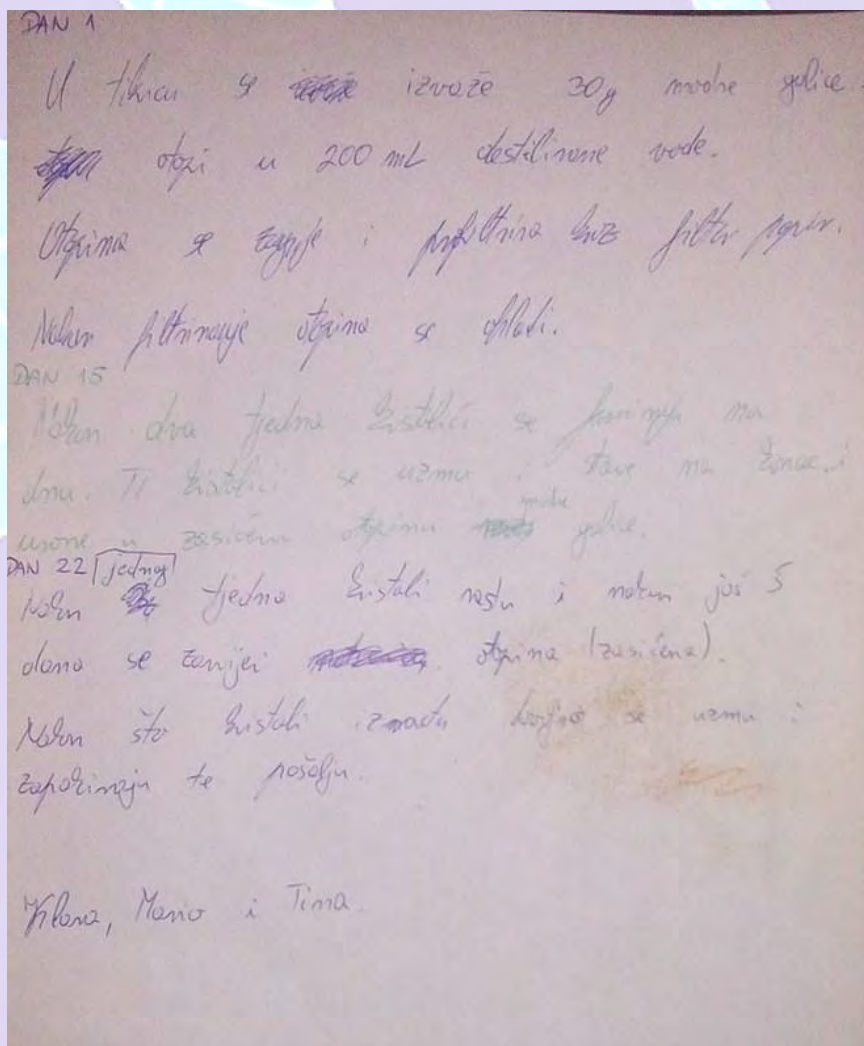 DAN 1
U tikvicu se izvaže 30g modre galice.
otopi u 200 mL destilirane vode.
Otopina se zagrije i profiltrira kroz filter papir.
Nakon filtriranje otopina se ohladi.
DAN 15
Nakon dva tjedna kristalići se formiraju na
dnu. Ti kristalići se uzmu i stave na konac i
urone u zasićenu otopinu modre galice.
DAN 22 jednog
Nakon tjedna kristali rastu i nakon još 5
dana se zamijeni otopina (zasićena).
Nakon što kristali izrastu dovoljno se uzmu i
zapakiraju te pošalju.
Klara, Mario i Tina.